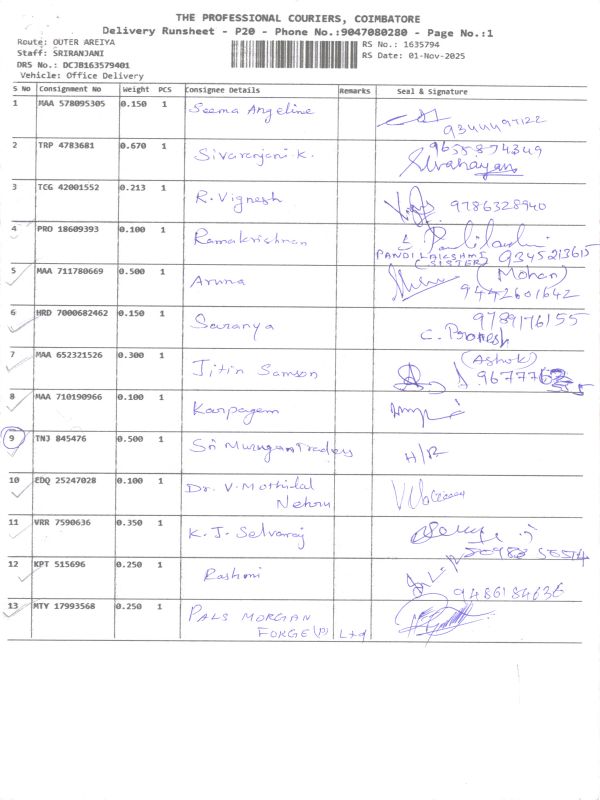 THE PROFESSIONAL COURIERS, COIMBATORE
Delivery Runsheet - P20 - Phone No.:9047080280 - Page No.:1
Route: OUTER AREIYA
Staff: SRIRANJANI
DRS No.: DCJB163579401
Vehicle: Office Delivery
RS No.: 1635794
RS Date: 01-Nov-2025
S No Consignment No Weight PCS Consignee Details Remarks Seal & Signature
1 MAA 578095305 0.150 1 Seema Angeline
2 TRP 4783681 0.670 1 Sivaranjani k. 9655874349
3 TCG 42001552 0.213 1 R. Vignesh 9786328940
4 PRO 18609393 0.100 1 Ramakrishnan
PANDILAKSHMI (SISTER) 9345213615
5 MAA 711780669 0.500 1 Aruna (Mohan)
9442601642
6 HRD 7000682462 0.150 1 Saranya 9789176155
7 MAA 652321526 0.300 1 Jitin Samson (Ashok)
8 MAA 710190966 0.100 1 Karpagam
9 TNJ 845476 0.500 1 Sri Murugan Traders H/R
10 EDQ 25247028 0.100 1 Dr. V. Mothilal
Nehru
11 VRR 7590636 0.350 1 K. J. Selvaraj
12 KPT 515696 0.250 1 Rashmi 9486184636
13 MTY 17993568 0.250 1 PALS MORGAN
FORGE (P) Ltd